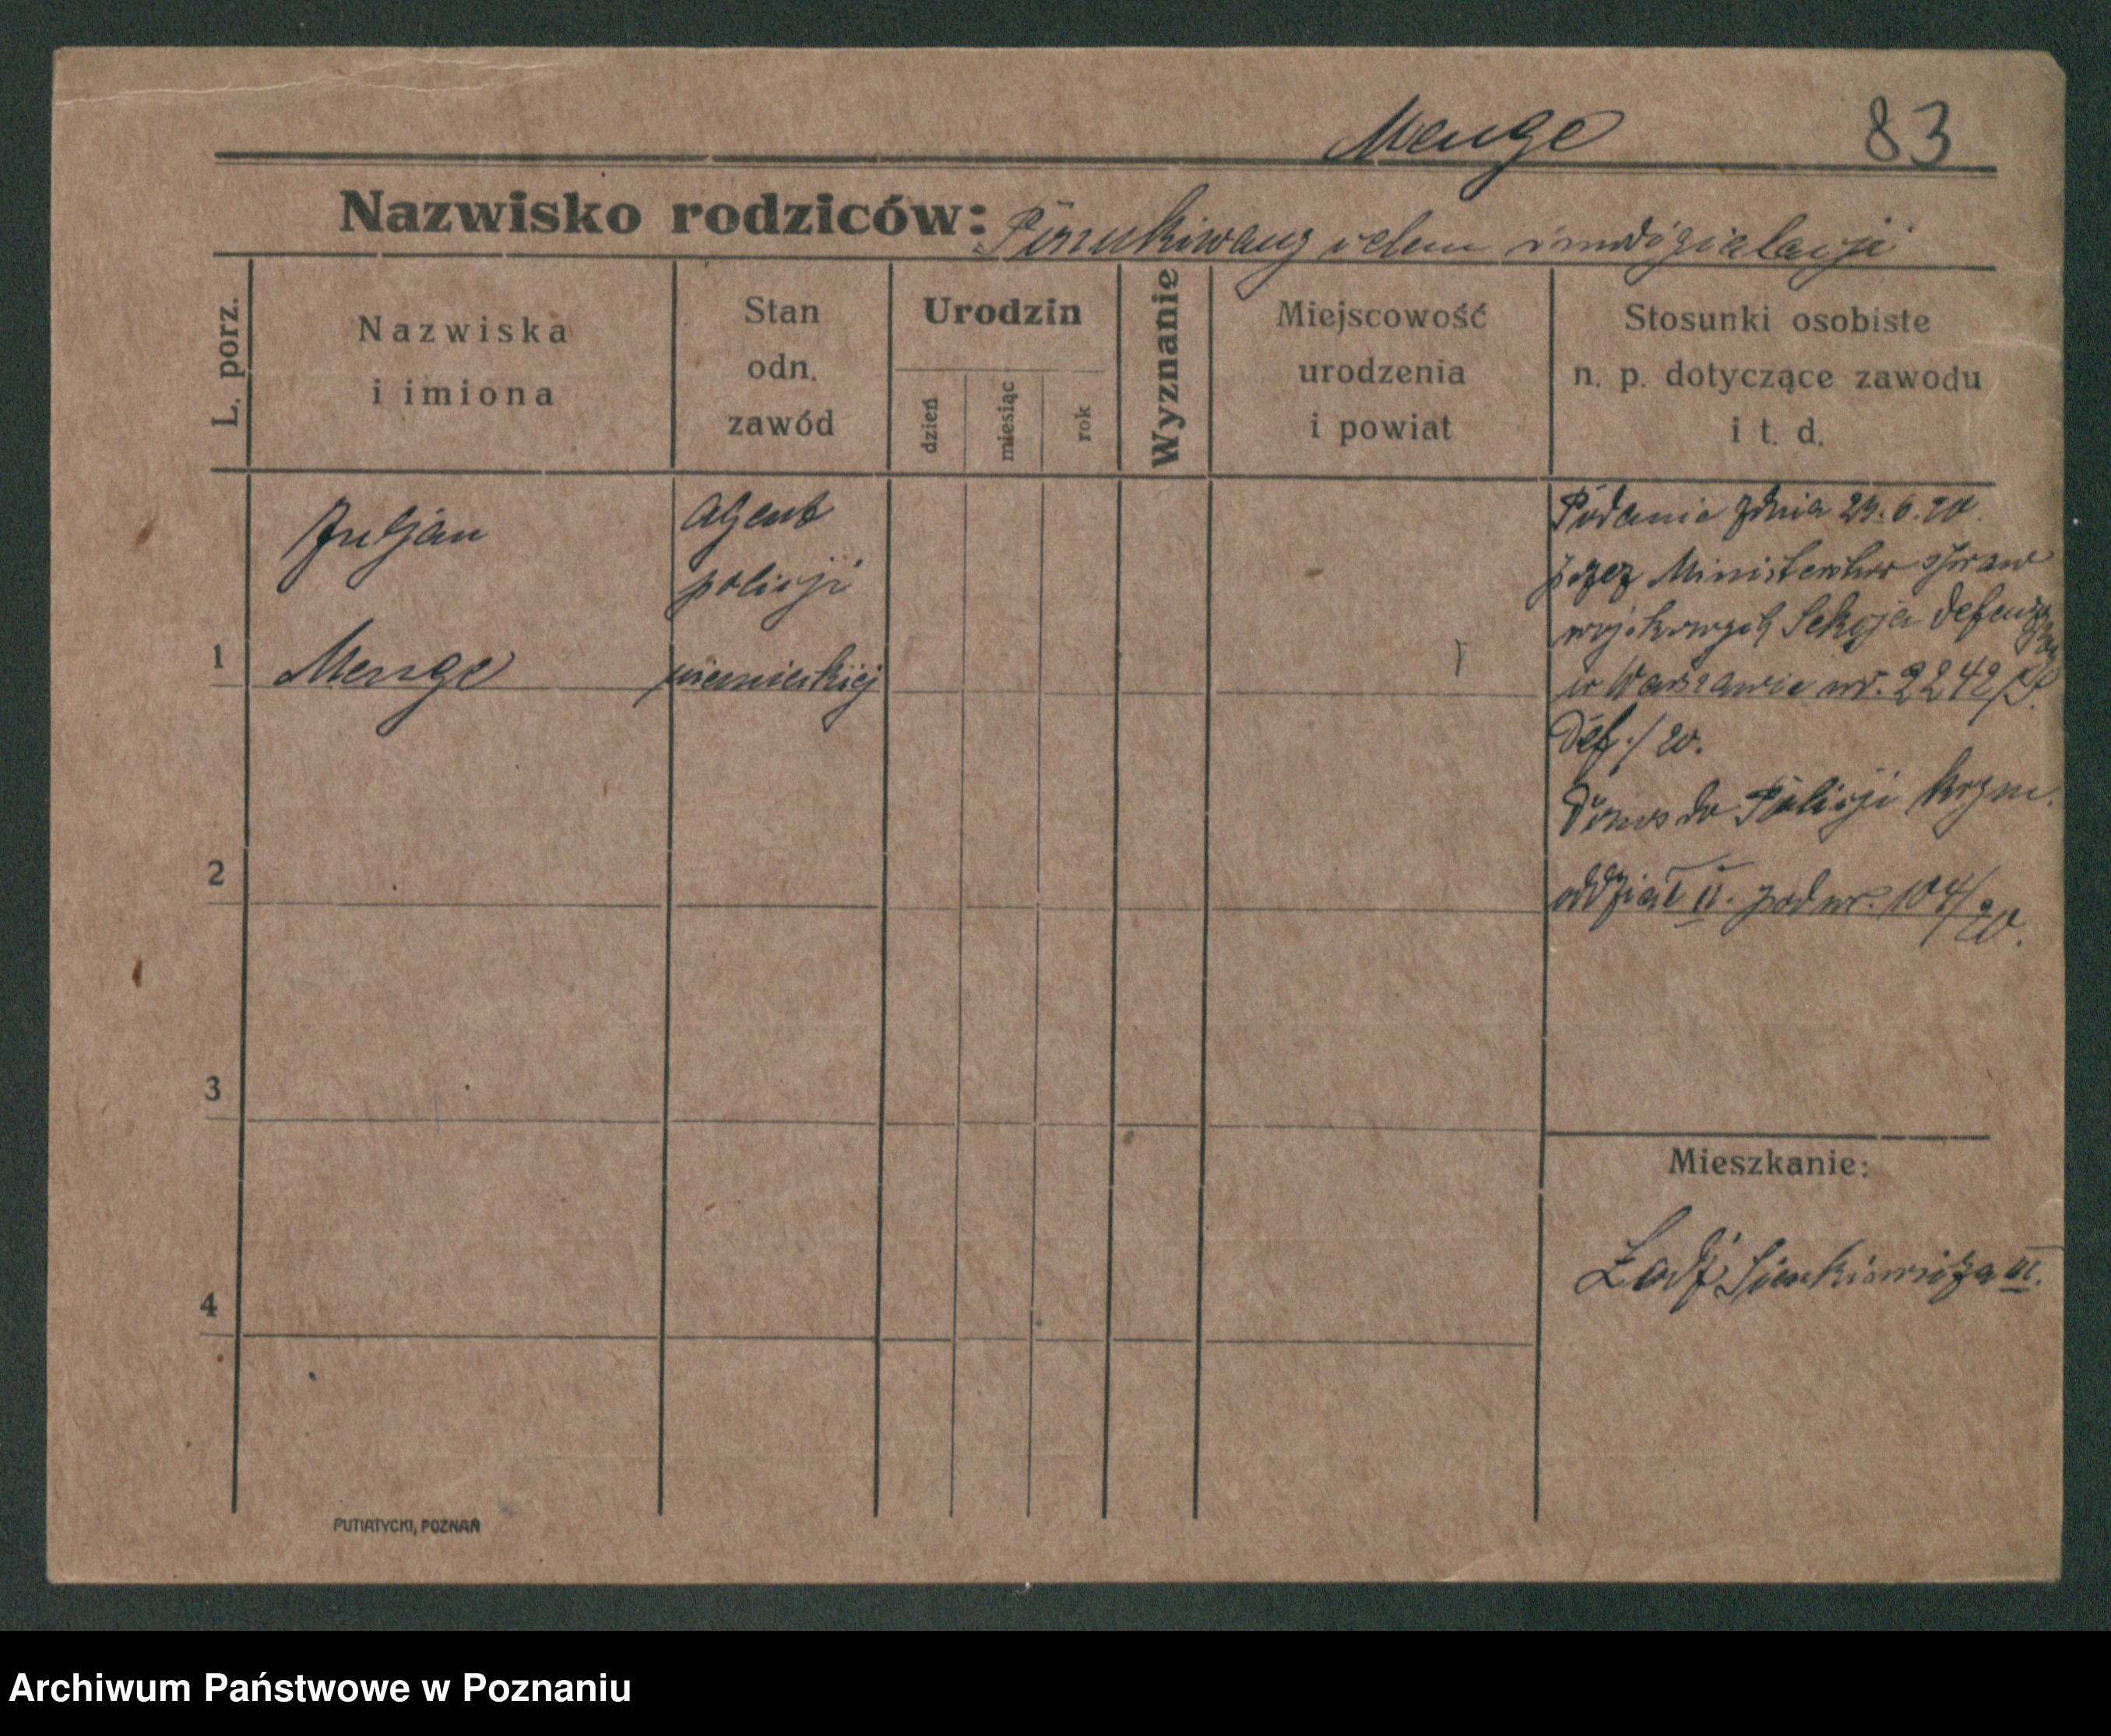 Menge 83
Nazwisko rodziców: Poszukiwany celem
L. porz.
Nazwiska
i imiona
Stan
odn.
zawód
Urodzin
dzień
miesiąc
rok
Wyznanie
Miejscowość
urodzenia
i powiat
Stosunki osobiste
n. p. dotyczące zawodu
i t. d.
1
Juljan
Menge
Agent
policji
niemieckiej
Podanie z dnia 6.20.
przez Ministerstwo spraw
wojskowych Sekcja
w Warszawie nr. 2242/
Def./20.
Donos do Policji krym.
oddział II. pod nr. 104/20.
2
3
4
Mieszkanie:
Łódź Sienkiewicza
PUTIATYCKI, POZNAŃ
Archiwum Państwowe w Poznaniu